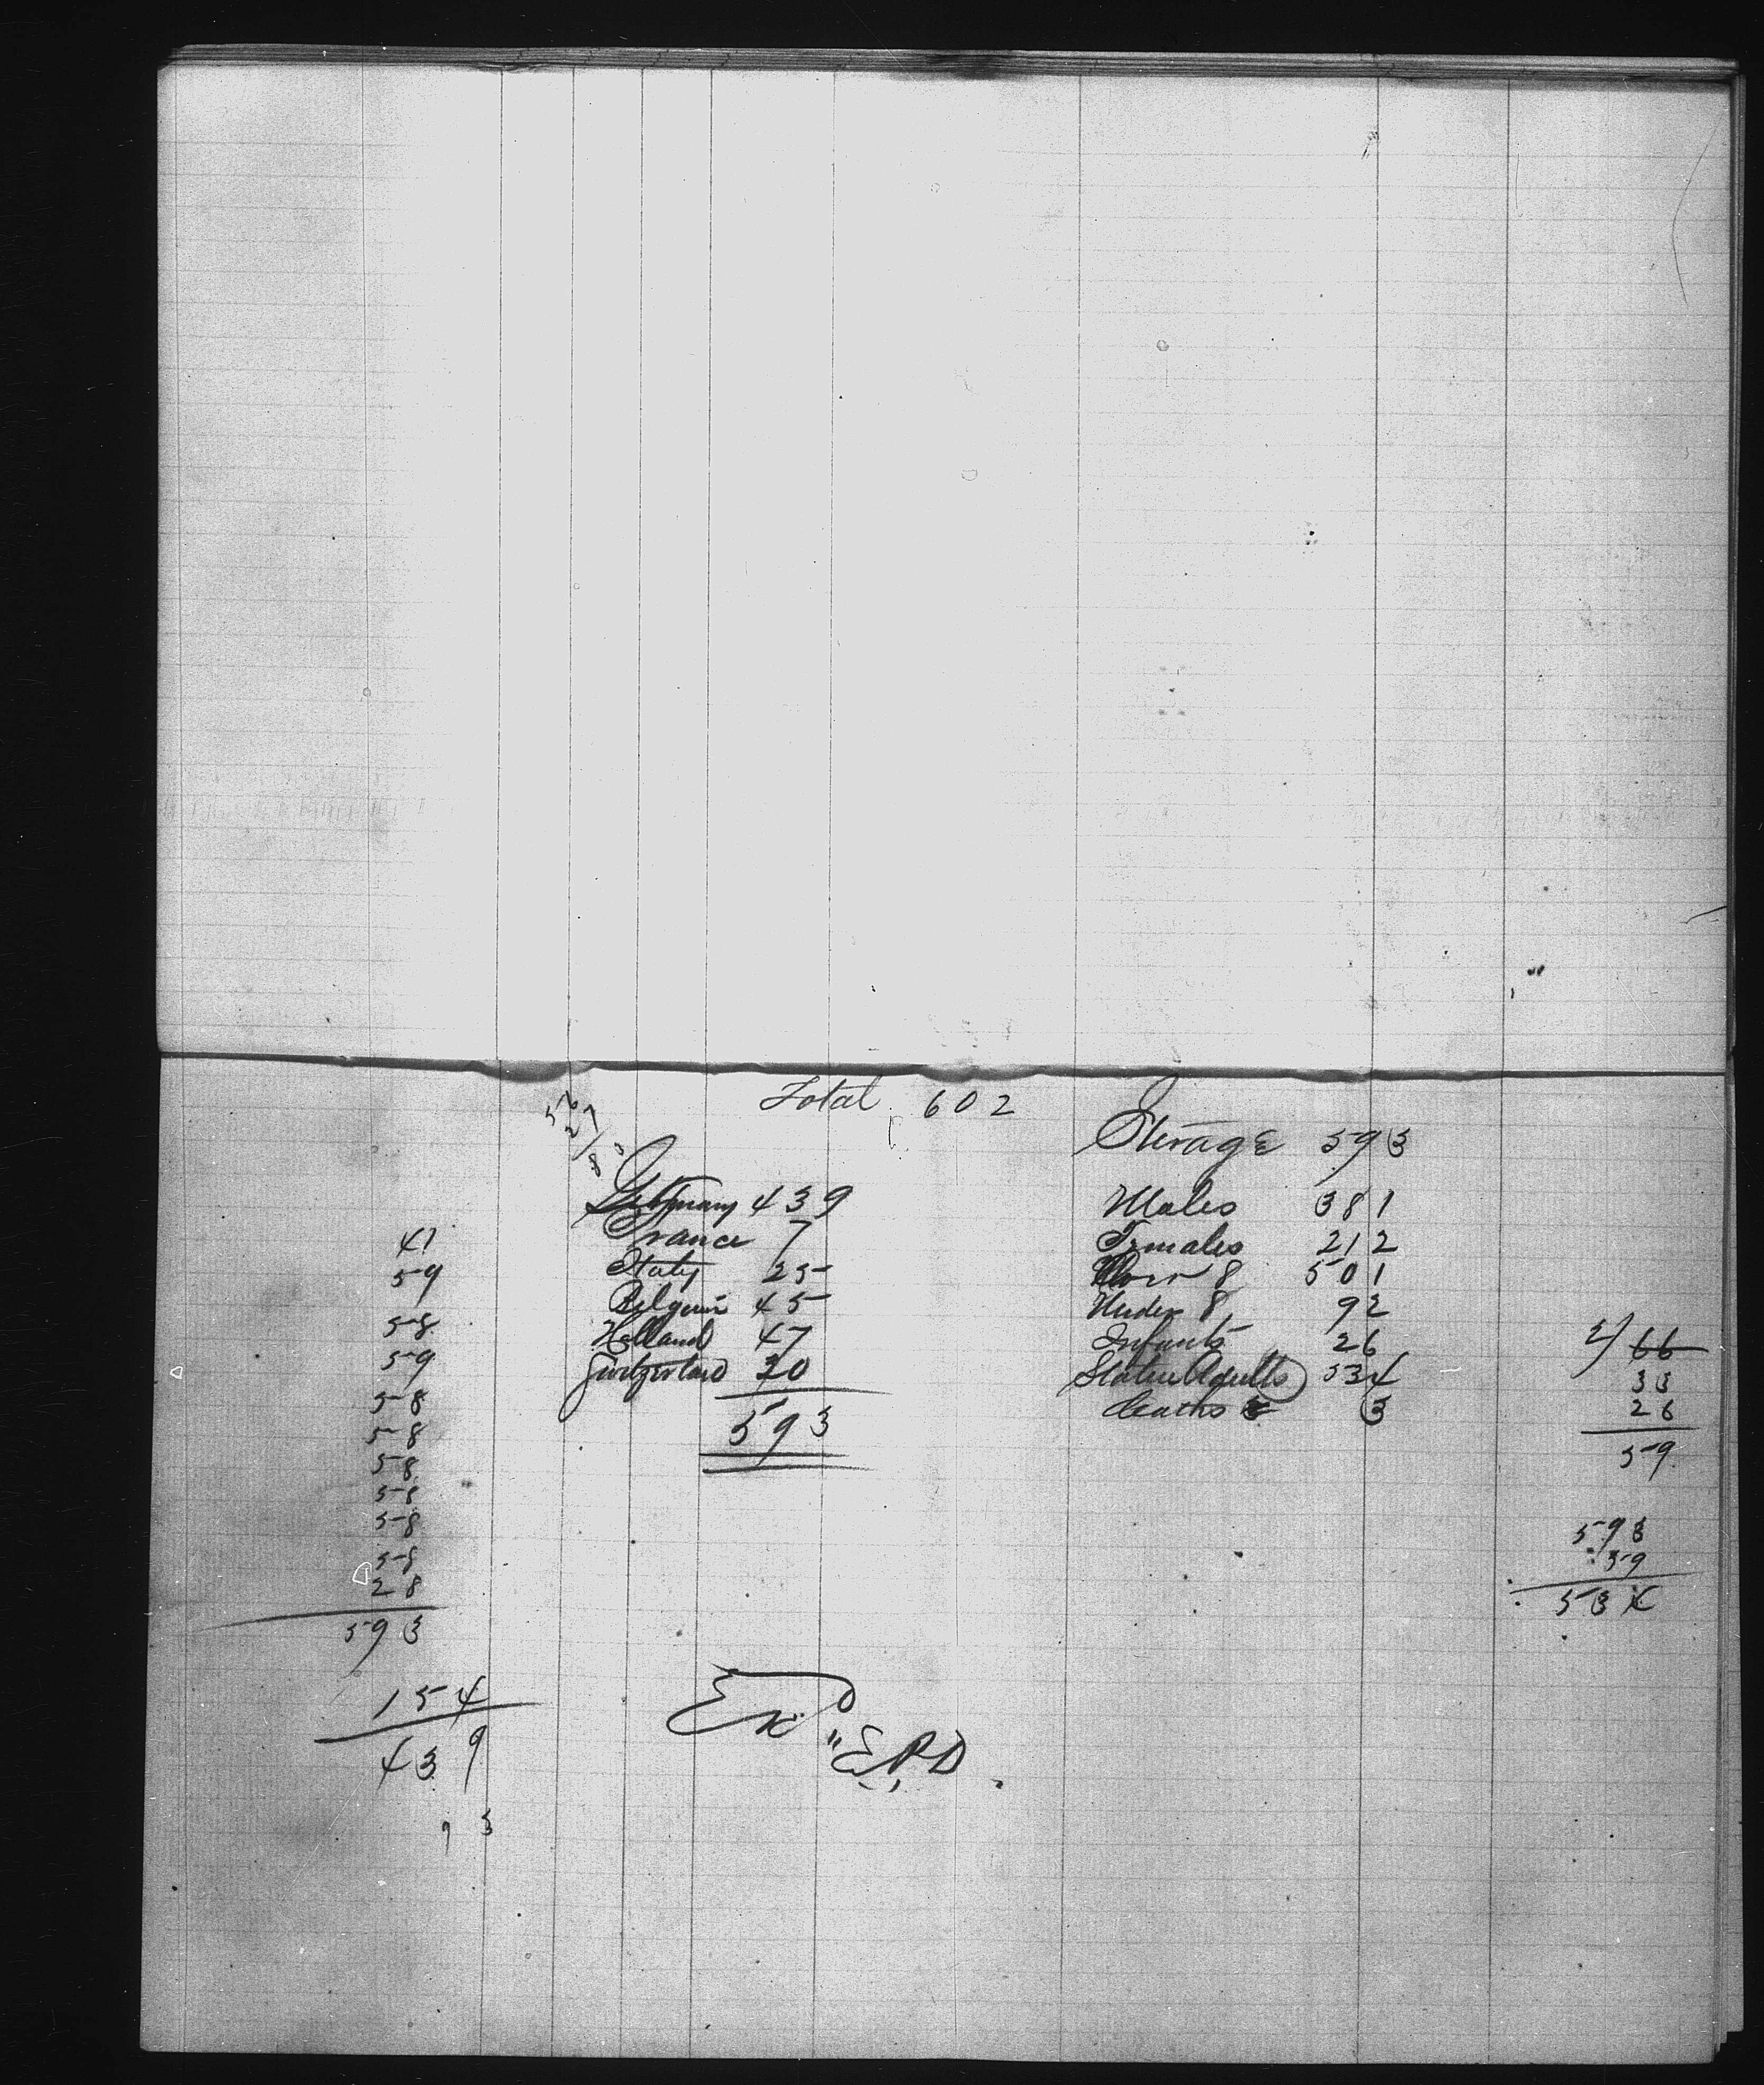 Total 602
56
27
8
Sterage 593
Germany 439
France 7
Italy 25
Belgium 45
Holland 47
Switzerland 30
593
Males 381
Females 212
Over 8 501
Under 8 92
Infants 26
Statue Adults 534
deaths 3
41
59
58
59
58
58
58
58
58
58
28
593
154
439
3
2/ 66
33
26
59
593
59
534
Exd
"E.P.D.